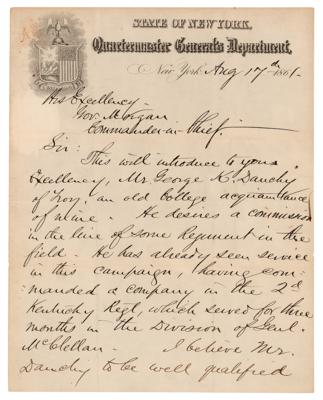 STATE OF NEW YORK,
Quartermaster General's Department,
New York Aug 17th 1861.
His Excellency -
Gov. Morgan
Commander-in-Chief.
Sir: This will introduce to your
Excellency, Mr George K. Dauchy
of Troy, an old College acquaintance
of mine. He desires a commission
in the line of some Regiment in the
field. He has already seen service
in this campaign, having com-
manded a company in the 2d
Kentucky Regt, which served for three
months in the Division of Genl.
McClellan. I believe Mr.
Dauchy to be well qualified